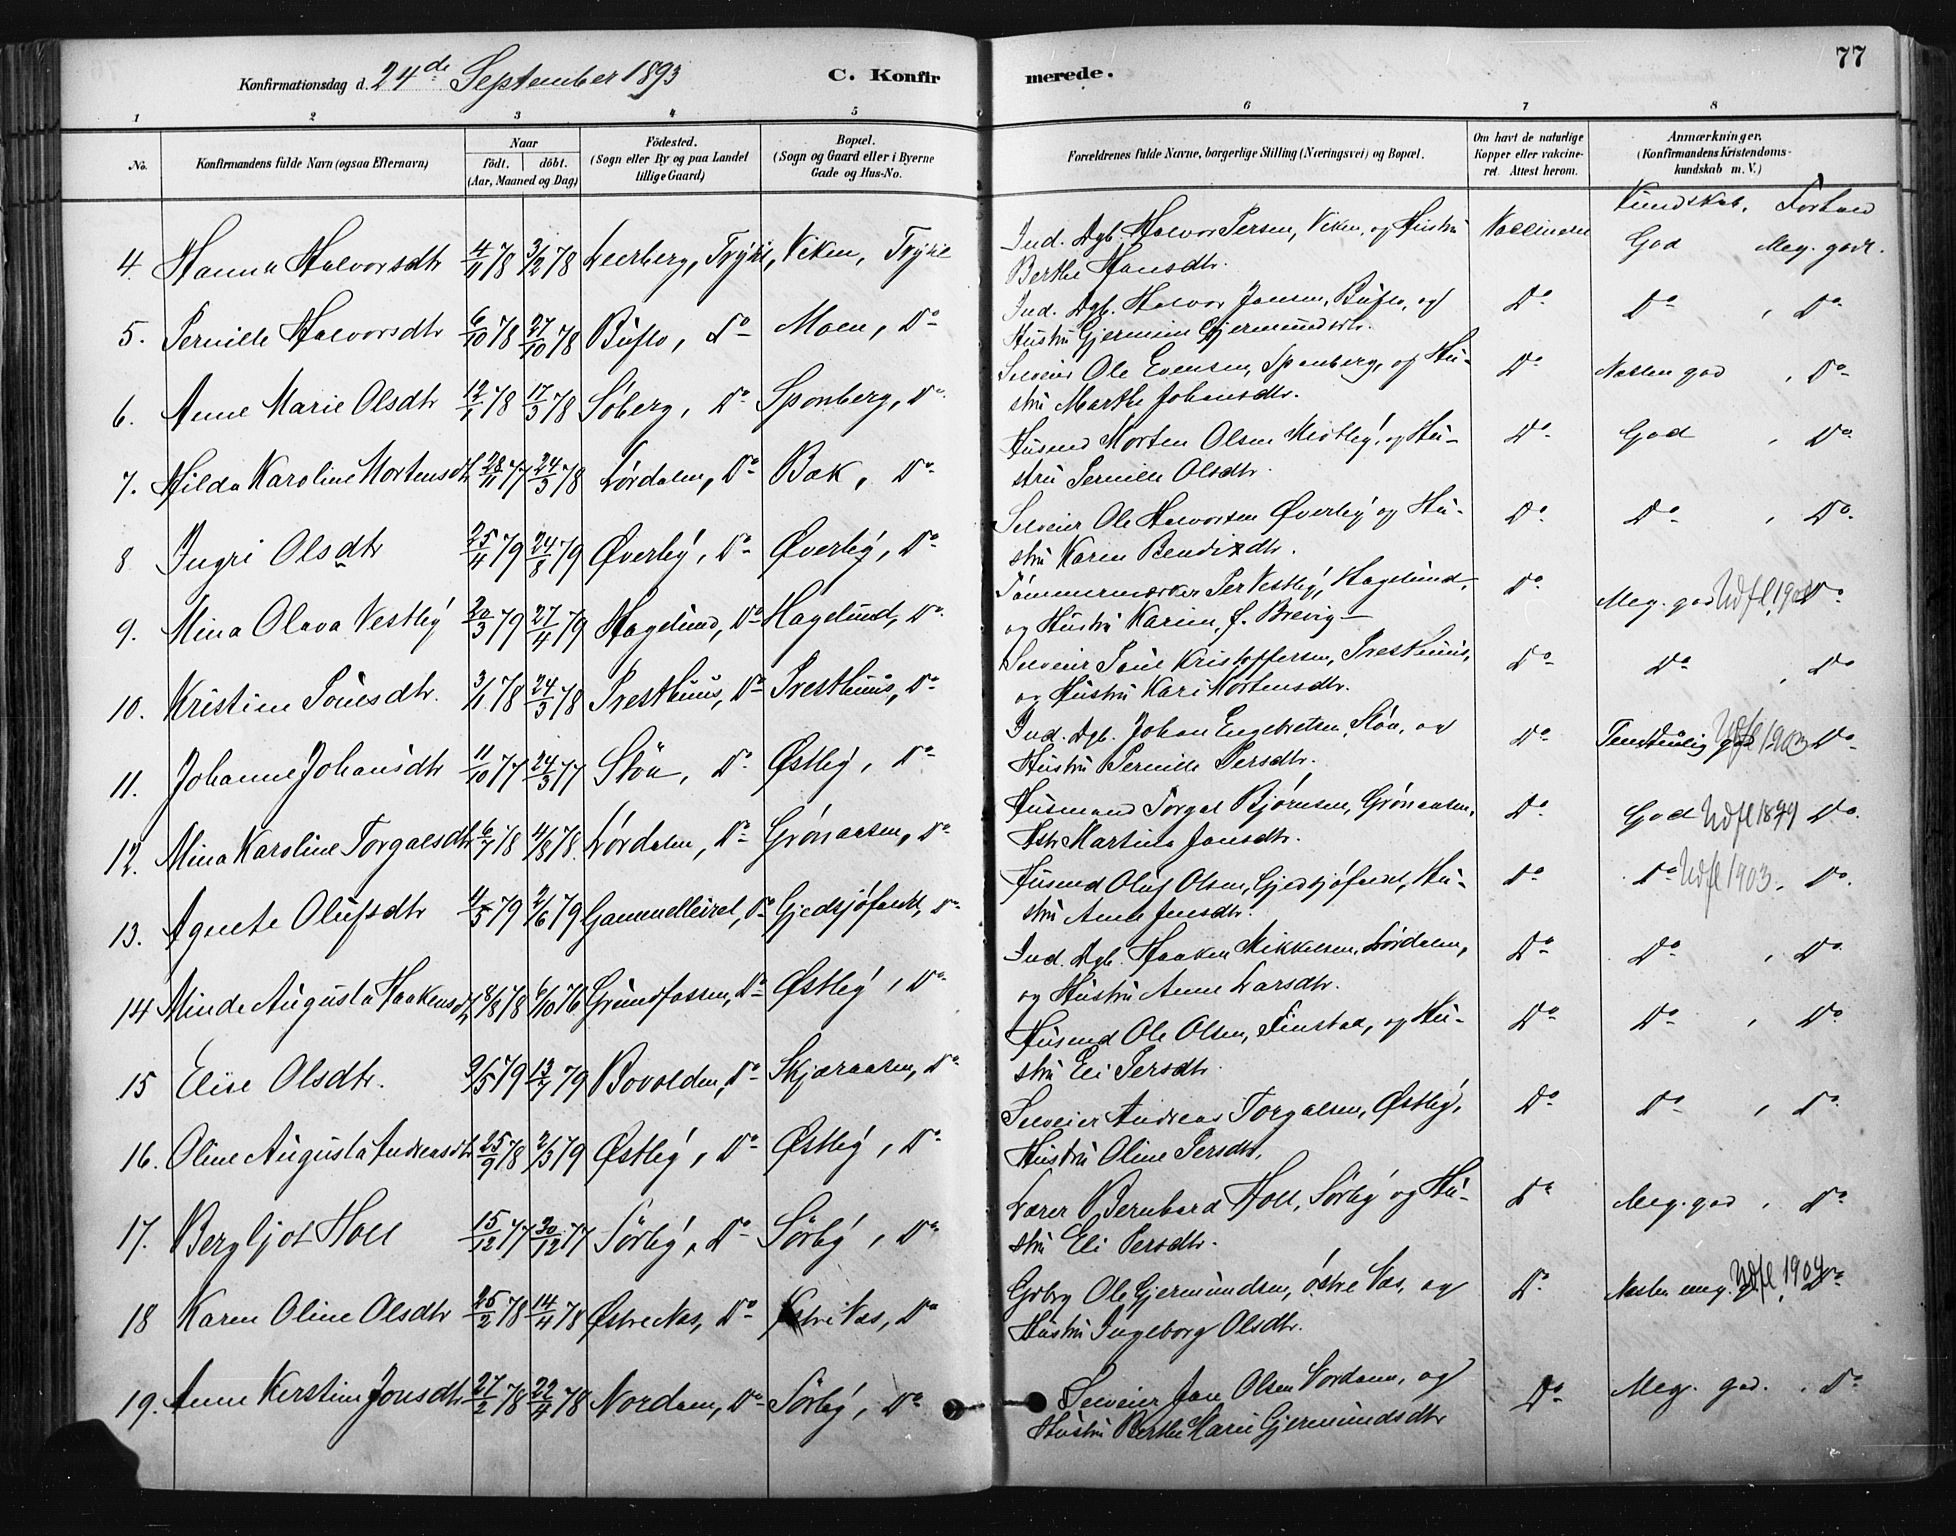 77
Konfirmationsdag d. 24de September 1893 C. Konfirmerede.
1 2 3 4 5 6 7 8
No. Konfirmandens fulde Navn (ogsaa Efternavn) Naar født. døbt. (Aar, Maaned og Dag) Födested. (Sogn eller By og paa Landet tillige Gaard) Bopæl. (Sogn og Gaard eller i Byerne Gade og Hus-No. Forældrenes fulde Navne, borgerlige Stilling (Næringsvei) og Bopæl. Om havt de naturlige Kopper eller vakcineret. Attest herom. Anmærkninger. (Konfirmandens Kristendomskundskab m. V.)
Kundskab. Forhold
4. Hanna Halvorsdtr 4/11 78 3/12 78 Leerberg, Trysil, Viken, Trysil Ind. Dgb. Halvor Persen, Viken, og Hustru God Meg. godt.
Berthe Hansdtr.
5. Pernille Halvorsdtr 6/10 78 27/10 78 Buflo, Do Moen, Do Ind. Dgb. Halvor Jonsen, Buflo, og Do Do , Do
Hustru Gjermine Gjermundsdtr.
6. Anne Marie Olsdtr 12/1 78 17/3 78 Søberg, Do Sponberg, Do Selveier Ole Evensen, Sponberg, og Hu- Do Næsten god , Do
stru Marthe Johansdtr.
7. Hilda Karoline Mortensdtr 28/11 77 24/3 78 Lørdalen, Do Bak, Do Husmd Morten Olsen Midtby, og Hu- Do God , Do
stru Pernille Olsdtr.
8 Ingri Olsdtr 25/4 79 24/8 79 Øverby, Do Øverby, Do Selveier Ole Halvorsen Øverby og Hu- Do Do , Do
stru Karen Bendixdtr.
9. Mina Olava Vestby 20/3 79 27/4 79 Hagelund, Do Hagelund, Do Tømmermærker Per Vestby, Hagelund, Do Meg. god Udfl. Do
og Hustru Karen, f. Brevig
10. Kristine Poulsdtr. 3/1 78 24/3 78 Presthuus, Do Presthuus, Do Selveier Poul Kristoffersen, Presthuus, Do Do , Do
og Hustru Kari Mortensdtr.
11. Johanne Johansdtr 11/10 77 24/3 77 Støa, Do Østby, Do Ind. Dgb. Johan Engebretsen, Støa, og Do Temmelig god Udfl 1903 Do
Hustru Pernille Persdtr.
12. Mina Karoline Torgalsdtr 6/7 78 4/8 78. Lørdalen, Do Grønaasen, Do Husmand Torgal Bjørnsen, Grønaasen, Do God Udfl 1899 Do
Hstr Martina Jonsdtr.
13. Agnete Olufsdtr 4/5 79 2/6 79 Gammelleiret, Do Gjedsjøfaret, Do Husmd Oluf Olsen, Gjedsjøfaret, Hu- Do Do Udfl 1903. Do
stru Anne Jensdtr.
14 Minda Augusta Haakensdtr 8/8 78 6/10 78 Grundfossen, Do Østby, Do Ind. Dgb. Haaken Mikkelsen, Lørdalen, Do Do , Do
og Hustru Anne Larsdtr.
15 Elise Olsdtr. 3/5 79 13/7 79 Bovolden, Do Skjæraasen, Do Husmd Ole Olsen, Finstad, og Hu- Do Do , Do
stru Eli Persdtr.
16. Oline Augusta Andreasdtr 25/9 78 2/3 79 Østby, Do Østby, Do Selveier Andreas Torgalsen, Østby, Do Do , Do
Hustru Oline Persdtr,
17. Bergljot Holl 15/12 77 30/12 77 Sørby, Do Sørby, Do Lærer Bernhard Holl, Sørby og Hu- Do Meg. god , Do
stru Eli Persdtr.
18 Karen Oline Olsdtr 25/2 78 14/4 78 Østre Næs, Do Østre Næs, Do Grbrg Ole Gjermundsen, østre Næs, og Do Næsten meg. god Udfl 1904 Do
Hustru Ingeborg Olsdtr.
19. Anne Kerstine Jonsdtr 27/2 78 22/4 78 Nordam, Do Sørby, Do Selveier Jon Olsen Nordam, og Do Meg. god. , Do
Hustru Berthe Marie Gjermundsdtr